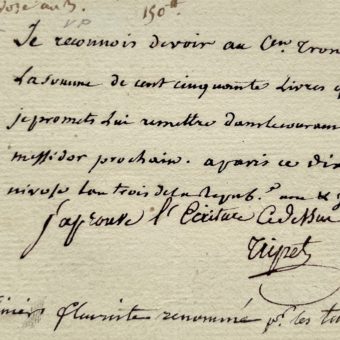 150ᵗᵗ
Je reconnois devoir au Cen. Tron
La somme de cent cinquante Livres
je promets Lui remettre dans le couran
messidor prochain. a paris ce dix
nivose l'an trois de la Repub.e une &
J'aprouve l'Ecriture Cydessus
Tripet
fleuriste renommé pr. les tu